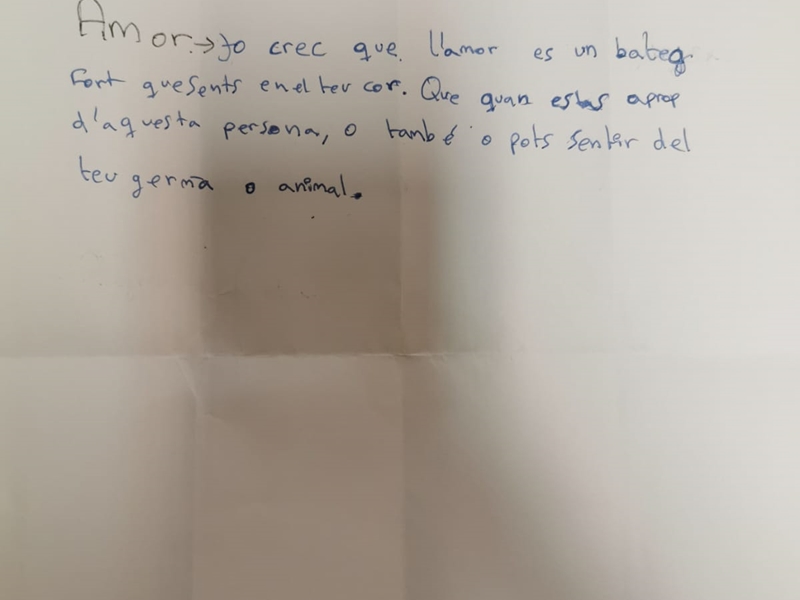 Amor.→Jo crec que l'amor es un bateg
Fort que sents en el teu cor. Que quan estas aprop
d'aquesta persona, o també o pots sentir del
teu germà o animal.